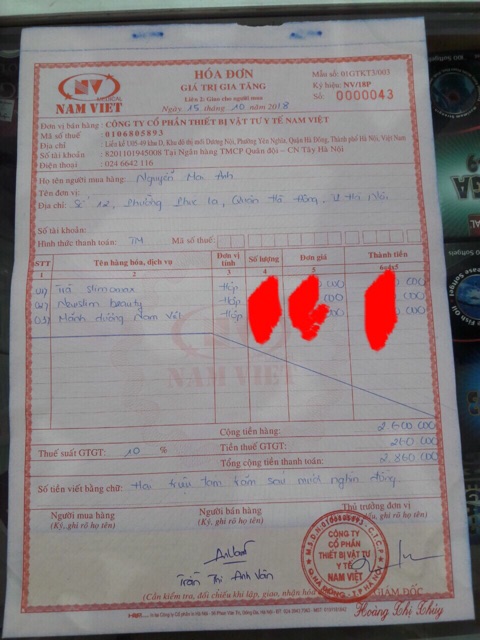 HÓA ĐƠN
GIÁ TRỊ GIA TĂNG
Liên 2: Giao cho người mua
Ngày 15 tháng 10 năm 2018
Mẫu số: 01GTKT3/003
Ký hiệu: NV/18P
Số: 0000043
NV
MEDICAL
NAM VIỆT
Đơn vị bán hàng : CÔNG TY CỔ PHẦN THIẾT BỊ VẬT TƯ Y TẾ NAM VIỆT
Mã số thuế : 0106805893
Địa chỉ : Liền kề U05-49 khu D, Khu đô thị mới Dương Nội, Phường Yên Nghĩa, Quận Hà Đông, Thành phố Hà Nội, Việt Nam
Số tài khoản : 8201101945008 Tại Ngân hàng TMCP Quân đội – CN Tây Hà Nội
Điện thoại : 024 6642 116
Họ tên người mua hàng: Nguyễn Mai Anh
Tên đơn vị:
Địa chỉ: Số 12, Phường Phúc la, Quận Hà Đông, Hà Nội
Số tài khoản:
Hình thức thanh toán: TM Mã số thuế:
STT Tên hàng hóa, dịch vụ Đơn vị tính Số lượng Đơn giá Thành tiền
1 2 3 4 5 6=4x5
01) Trà Slimmax Hộp 000 000
02) Newslim beauty Hộp 000 000
03) Mãnh dương Nam Việt Hộp 000 000
NAM VIỆT
Cộng tiền hàng: 2.600.000
Thuế suất GTGT: 10 % Tiền thuế GTGT: 260.000
Tổng cộng tiền thanh toán: 2.860.000
Số tiền viết bằng chữ: Hai triệu tám trăm sáu mươi nghìn đồng
Người mua hàng Người bán hàng Thủ trưởng đơn vị
(Ký, ghi rõ họ tên) (Ký, ghi rõ họ tên)
M.S.D.N:0106805893-C.T.C.P
CÔNG TY
CỔ PHẦN
THIẾT BỊ VẬT TƯ
Y TẾ
NAM VIỆT
Q.HÀ ĐÔNG-T.P HÀ NỘI
Trần Thị Anh Vân
GIÁM ĐỐC
Hoàng Thị Thúy
(Cần kiểm tra, đối chiếu khi lập, giao, nhận hóa